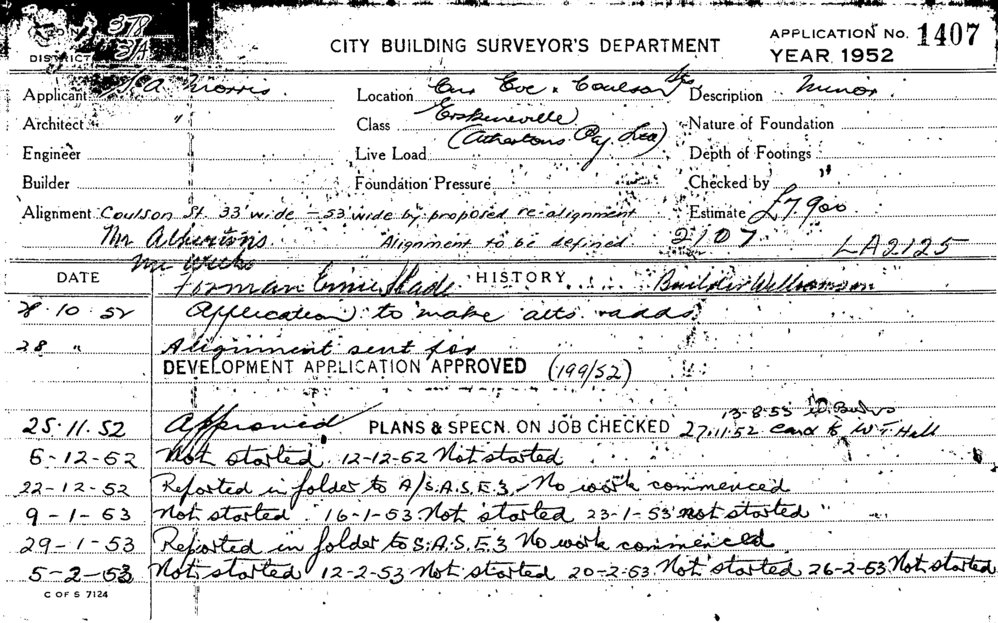 378
3/A
DISTRICT
CITY BUILDING SURVEYOR'S DEPARTMENT
APPLICATION No. 1407
YEAR 1952
Applicant Morris Location Cnr Eve & Coulson Sts Description Minor
Architect " Class Erskineville Nature of Foundation
Engineer Live Load (Athertons Pty. Ltd) Depth of Footings
Builder Foundation Pressure Checked by
Alignment Coulson St. 33' wide - 53' wide by proposed re-alignment Estimate £7,900
Mr Athertons Alignment to be defined 2107 LA2125
Mr
DATE Forman Ernie Slade HISTORY Builder Williamson
28.10.52 Application to make alts. & adds.
28 " Alignment sent for
DEVELOPMENT APPLICATION APPROVED (199/52)
13-8-53
25.11.52 Approved PLANS & SPECN. ON JOB CHECKED 27.11.52 Card to W.T. Hall
5-12-52 Not started 12-12-52 Not started
22-12-52 Reported in folder to A/S.A.S.E.3. No work commenced
9-1-53 Not started 16-1-53 Not started 23-1-53 not started
29-1-53 Reported in folder to S.A.S.E.3 No work commenced
5-2-53 Not started 12-2-53 Not started 20-2-53 Not started 26-2-53 Not started
C OF S 7124